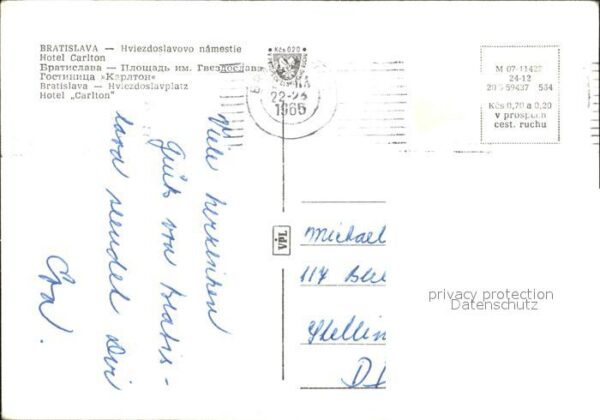 BRATISLAVA — Hviezdoslavovo námestie
Hotel Carlton
Братислава — Площадь им. Гвездослава
Гостиница »Карлтон«
Bratislava — Hviezdoslavplatz
Hotel „Carlton“
Kčs 0,20
22-23
1965
M 07-11427
24-12
20 3 59437 534
Kčs 0,70 a 0,20
v prospech
cest. ruchu
Viele herzlichen
Grüß von Bratis-
lava sendet Dir
Eva.
VPL
Michael
117
Stellin
D
privacy protection
Datenschutz